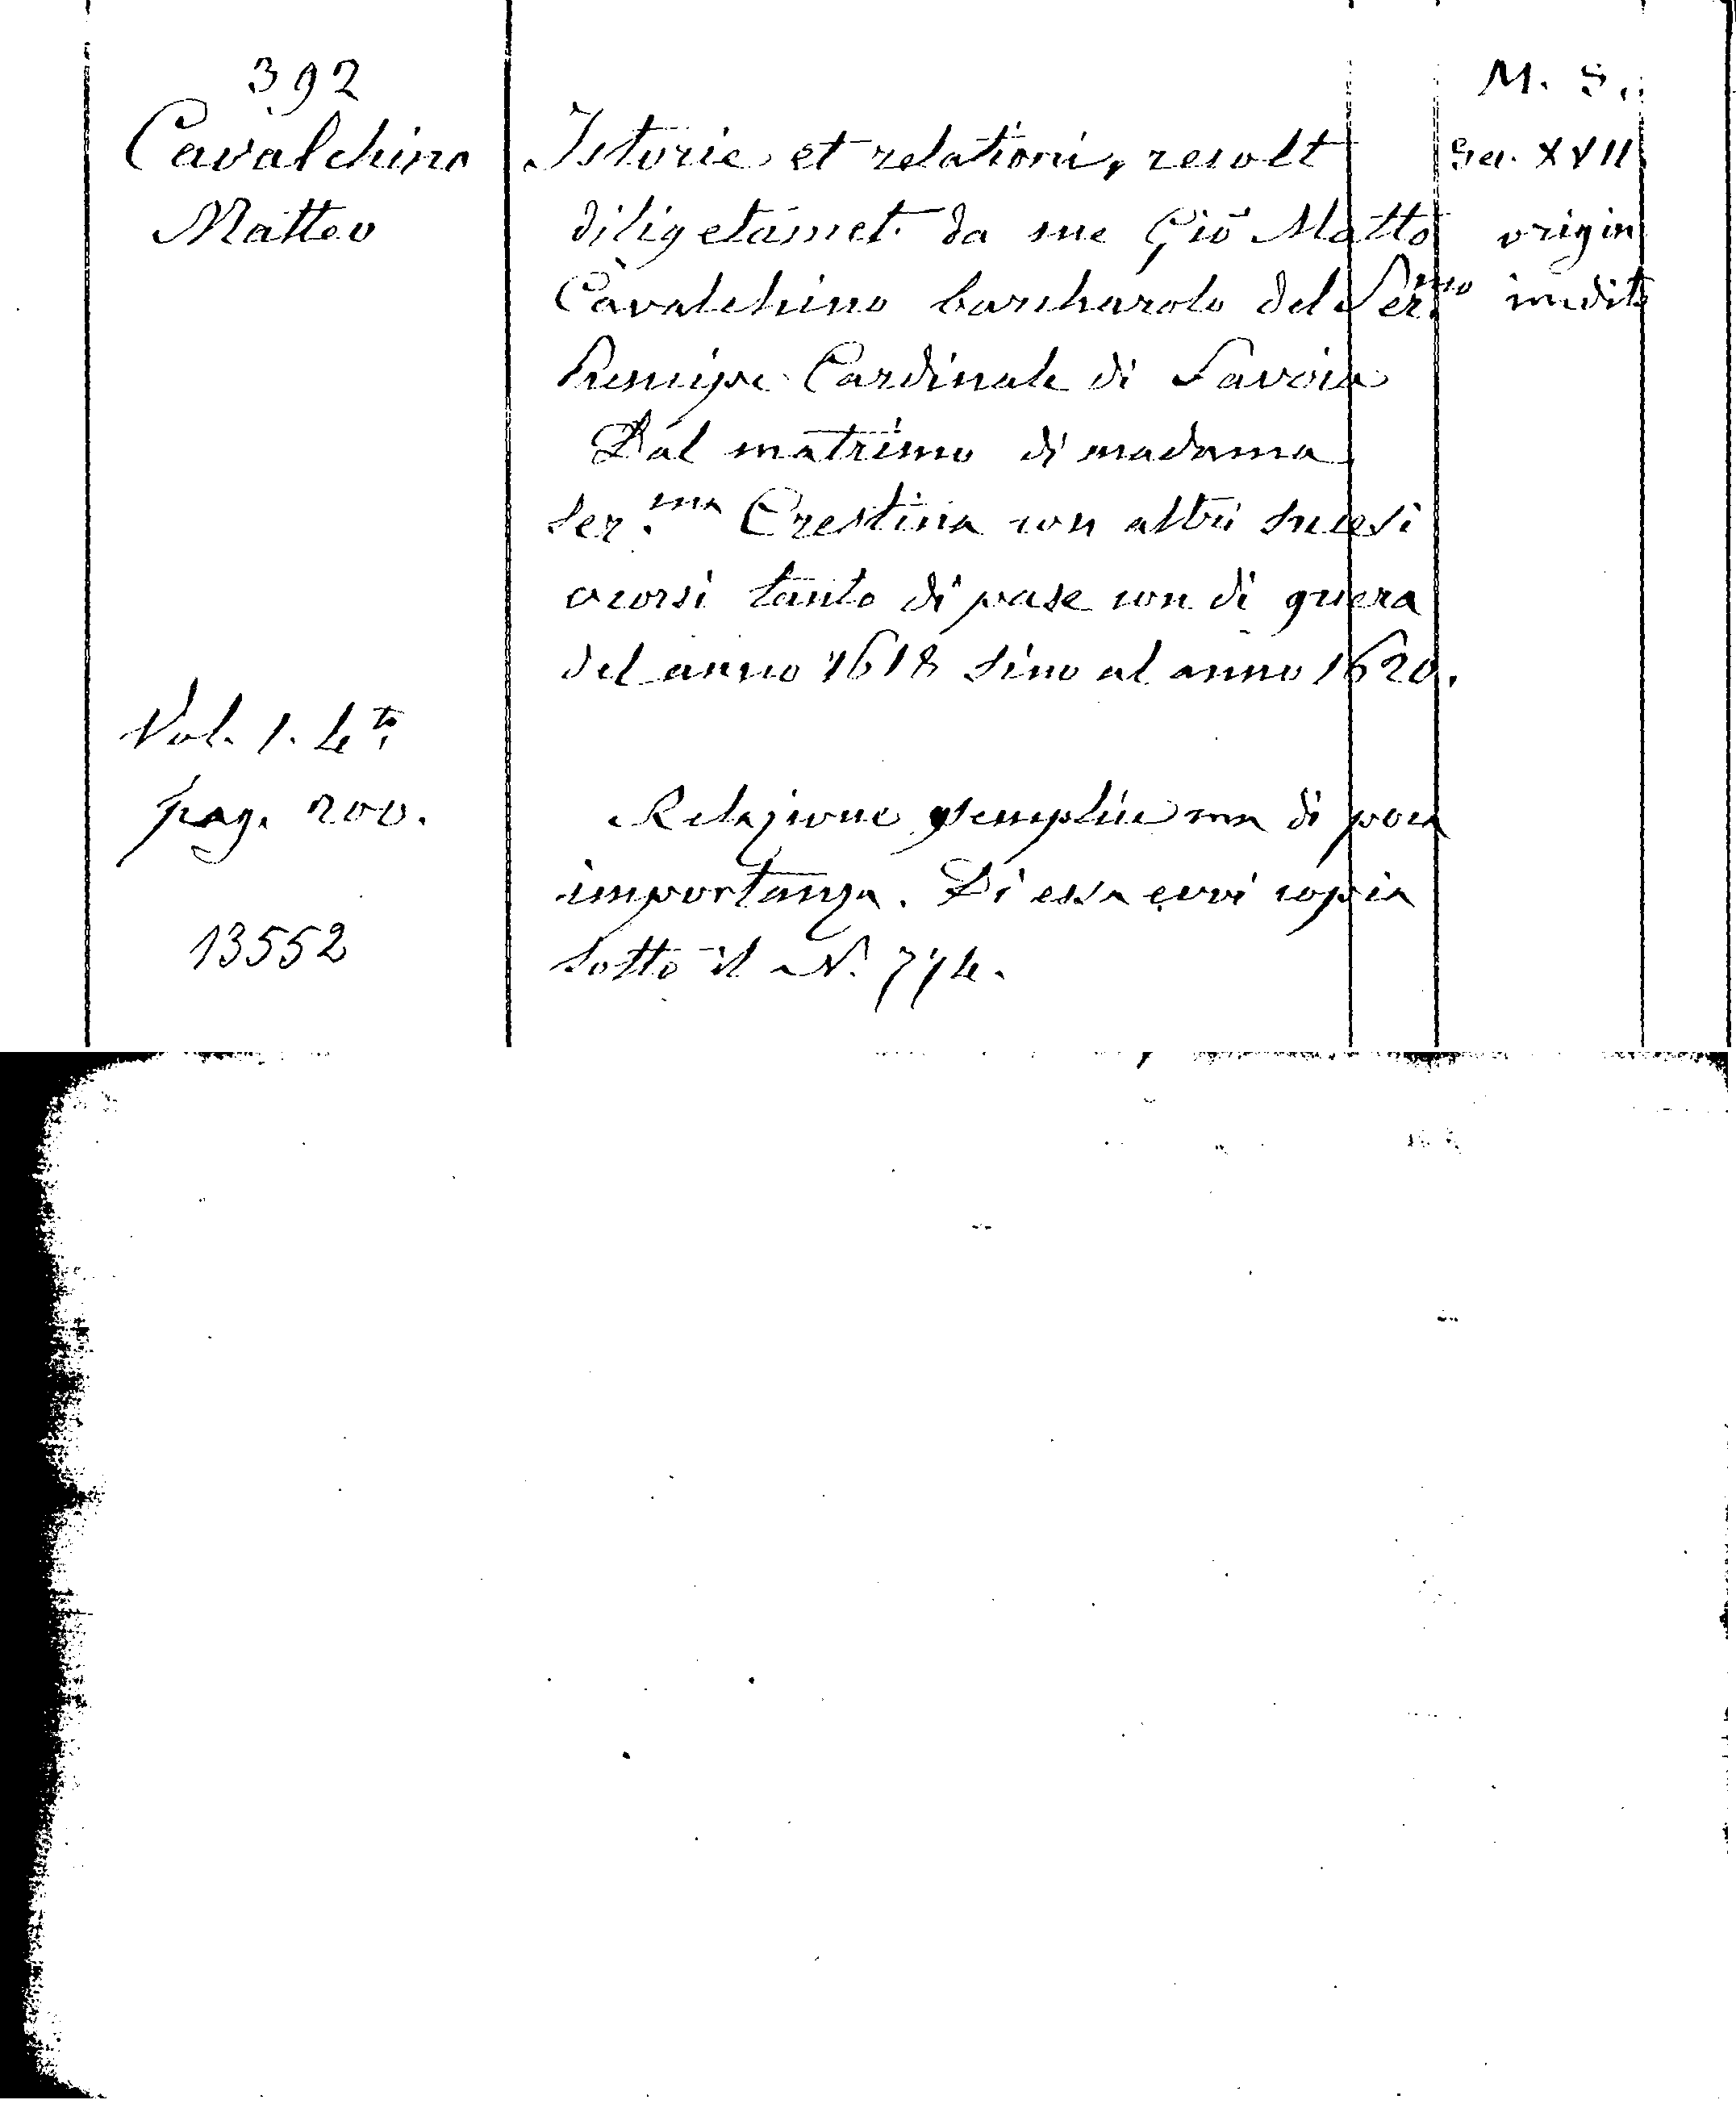 392
Cavalchino
Matteo
Vol. 1. 4to
pag. 200.
13552
Istorie et relationi, recolt
diligetamet. da me Giō Matto
Cavalchino barcharolo del Ser.mo
Prencipe Cardinale di Savoia
Dal matrimo di madama
Ser.ma Crestina con altri sucesi
ocorsi tanto di pase con di guera
del anno 1618 sino al anno 1620.
Relazione semplice ma di poca
importanza. Di essa evvi copia
sotto il N. 774.
M. S.
Sec. XVII
origin
inedito